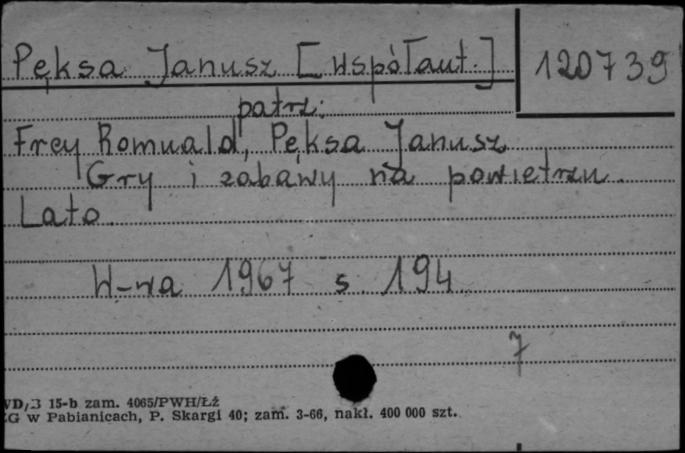 Pęksa Janusz [współaut.] 120739
patrz:
Frey Romuald, Pęksa Janusz
Gry i zabawy na powietrzu.
Lato.
W-wa 1967 s. 194
7
WD/3 15-b zam. 4065/PWH/Łź
ZG w Pabianicach, P. Skargi 40; zam. 3-66, nakł. 400 000 szt.